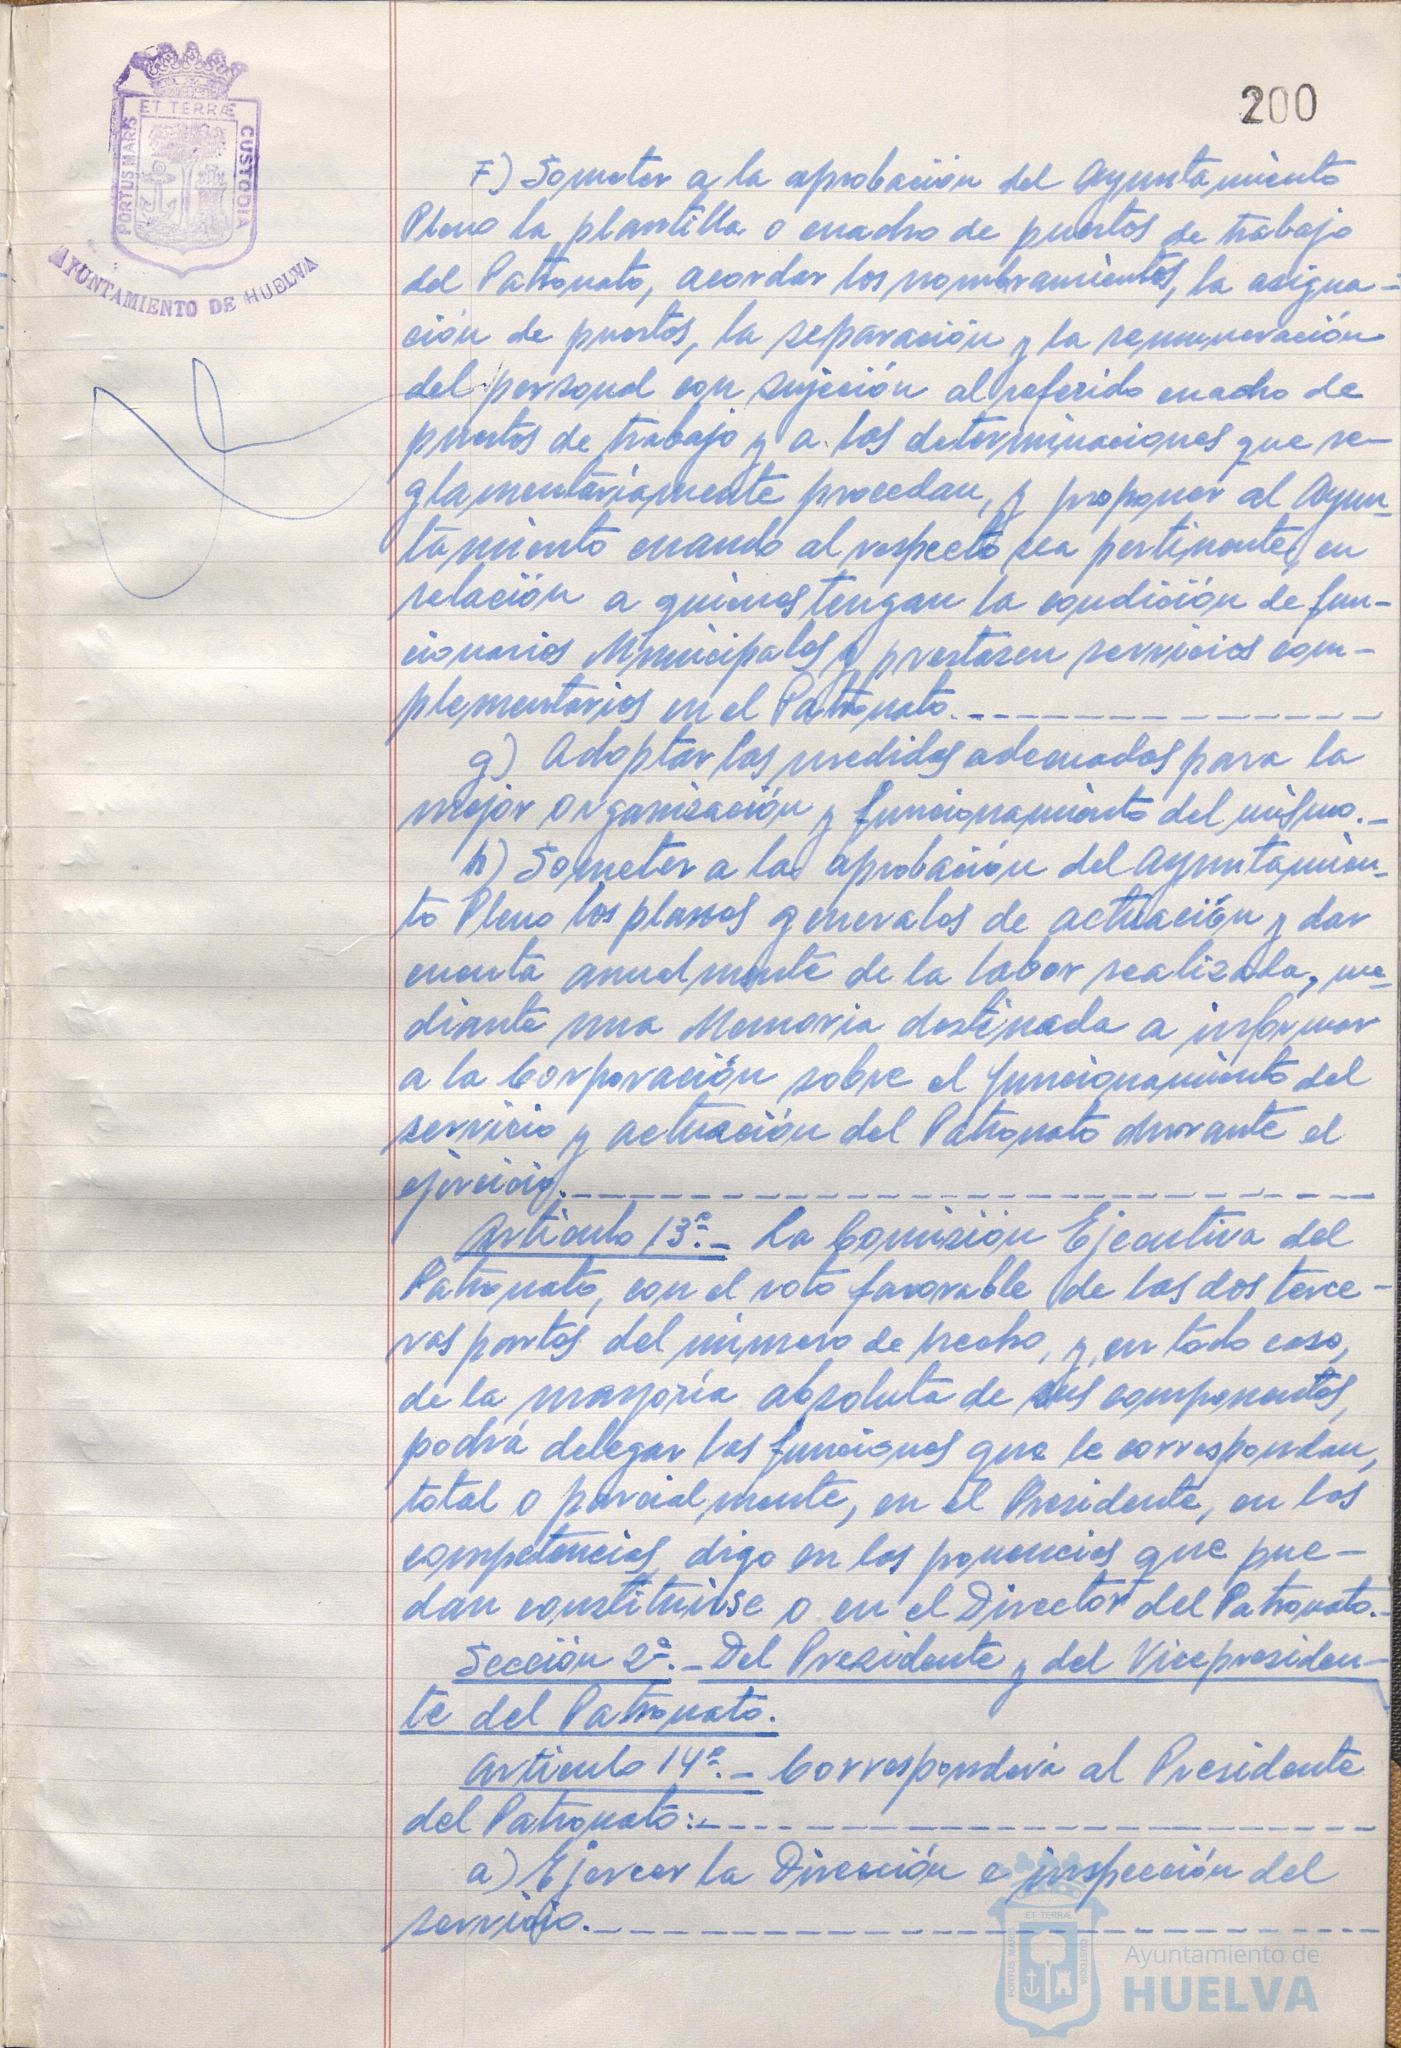 200
ET TERRÆ
PORTUS MARIS
CUSTODIA
AYUNTAMIENTO DE HUELVA
F) Someter a la aprobación del Ayuntamiento
Pleno la plantilla o cuadro de puestos de trabajo
del Patronato, acordar los nombramientos, la asigna-
ción de puestos, la separación y la remuneración
del personal con sujeción al referido cuadro de
puestos de trabajo y a las determinaciones que re-
glamentariamente procedan, y proponer al Ayun-
tamiento cuando al respecto sea pertinente, en
relación a quienes tengan la condición de fun-
cionarios Municipales y prestasen servicios com-
plementarios en el Patronato.
g) Adoptar las medidas adecuadas para la
mejor organización y funcionamiento del mismo.-
h) Someter a la aprobación del Ayuntamien-
to Pleno los planos generales de actuación y dar
cuenta anualmente de la labor realizada, me-
diante una Memoria destinada a informar
a la Corporación sobre el funcionamiento del
servicio y actuación del Patronato durante el
ejercicio.
Artículo 13º.- La Comisión Ejecutiva del
Patronato, con el voto favorable de las dos terce-
ras partes del número de hecho, y, en todo caso,
de la mayoría absoluta de sus componentes,
podrá delegar las funciones que le correspondan,
total o parcialmente, en el Presidente, en las
competencias, digo en las ponencias que pue-
dan constituirse o en el Director del Patronato.-
Sección 2ª.- Del Presidente y del Vicepresiden-
te del Patronato.
Artículo 14º.- Corresponderá al Presidente
del Patronato:-
a) Ejercer la Dirección e inspección del
servicio.
ET TERRÆ
PORTUS MARIS
CUSTODIA
Ayuntamiento de
HUELVA